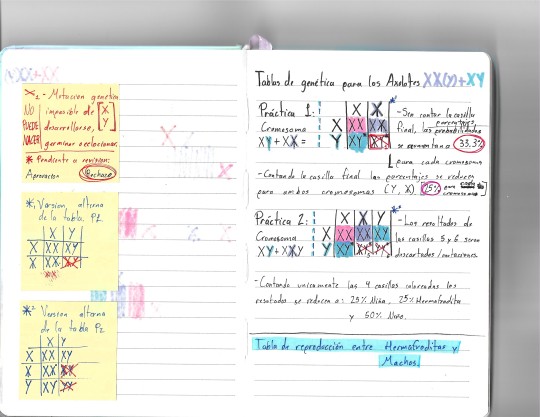 XX(y)+XY
X₁ - Mutación genética
NO
PUEDE
NACER
imposible de
desarrollarse,
germinar o eclosionar.
X
Y
* Pendiente a revisión:
Aprovación
Rechazo
*¹ Version alterna
de la tabla P1
X Y
X XX XY
X XX XX
*² Version alterna
de la tabla P2
X Y
X XX XY
X XX XX
Y XY
Tablas de genética para los Axolotes XX(y)+XY
Práctica 1:
Cromosoma
XY + XX =
X X
X XX XX
Y XY XX
*¹
- Sin contar la casilla
final, las probabilidades
se aumentan a 33.3%
para cada cromosoma
- Contando la casilla final los porcentajes se reducen
para ambos cromosomas (Y, X). 25% para cada
cromosoma
Práctica 2:
Cromosoma
XY + XXY
X X Y
X XX XX XY
Y XY
*²
- Los resultados de
las casillas 5 y 6 seran
descartados/mutaciones.
- Contando unicamente las 4 casillas coloreadas los
resultado se reducen a: 25% Niña, 25% Hermafrodita
y 50% Niño.
Tabla de reproducción entre Hermafroditas y
Machos.